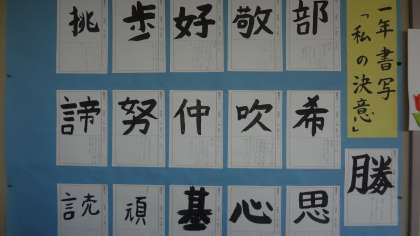 一年 書写
「私の決意」
部
敬
好
歩
挑
希
吹
仲
努
諦
勝
思
心
基
頑
読